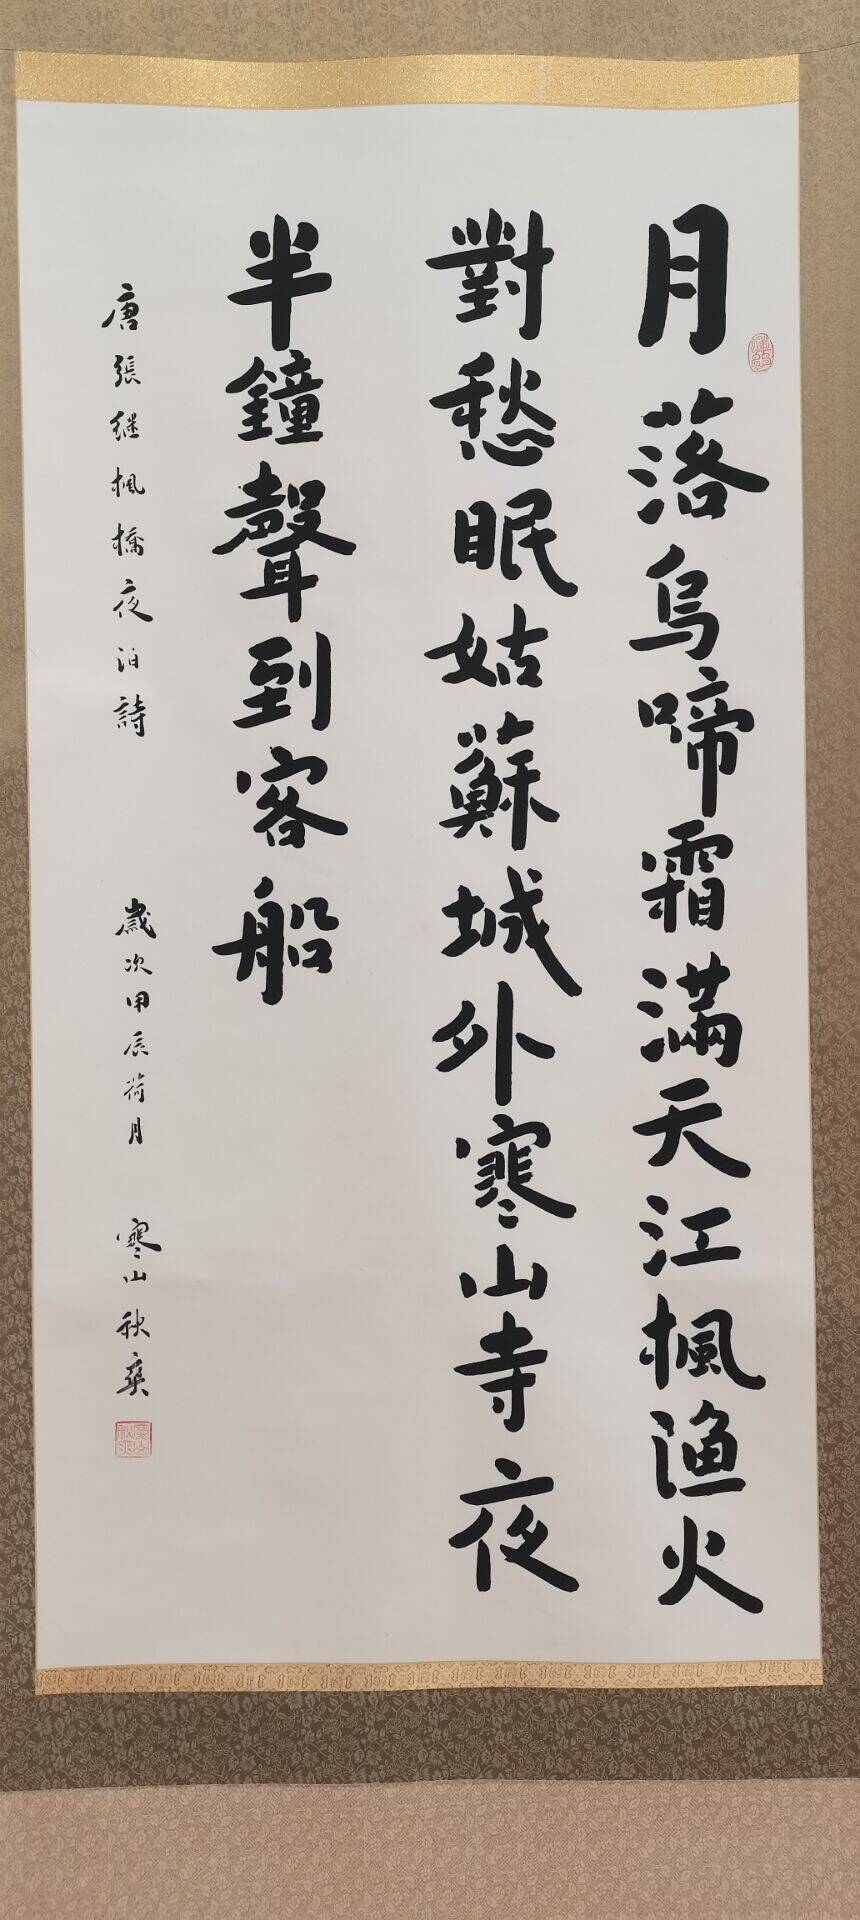 月落烏啼霜滿天江楓漁火
對愁眠姑蘇城外寒山寺夜
半鐘聲到客船
唐張继楓橋夜泊詩 歲次甲辰荷月 寒山秋爽